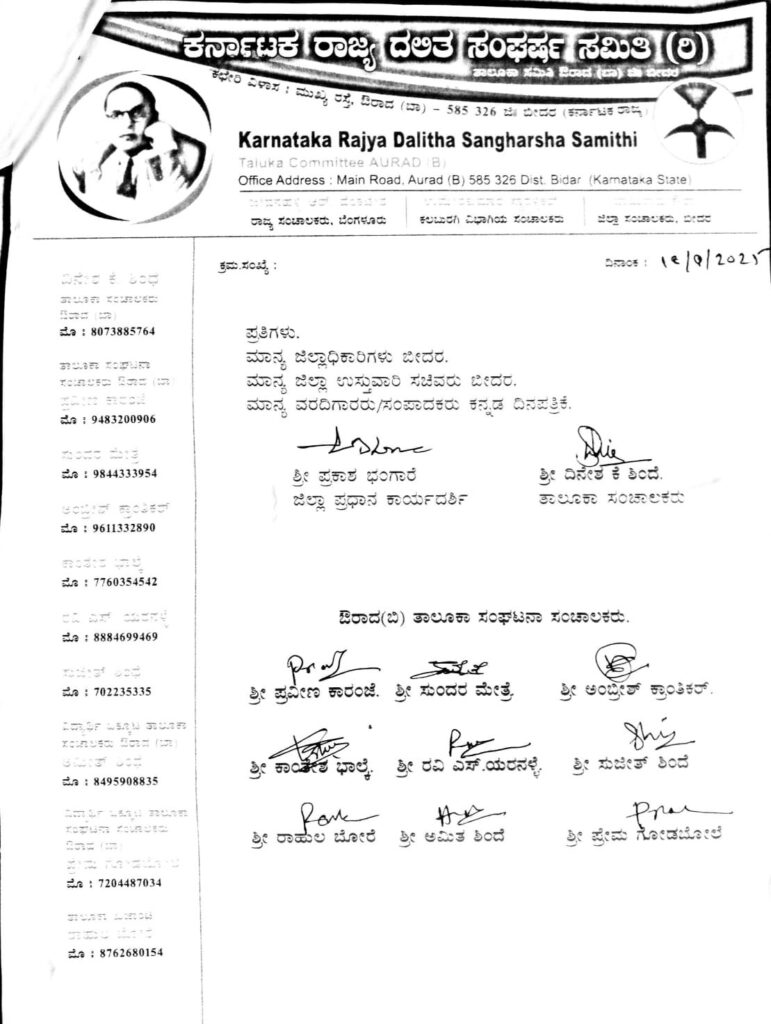 ಕರ್ನಾಟಕ ರಾಜ್ಯ ದಲಿತ ಸಂಘರ್ಷ ಸಮಿತಿ (ರಿ)
ತಾಲೂಕಾ ಸಮಿತಿ ಔರಾದ (ಬಾ) ಜಿಃ ಬೀದರ
ಕಛೇರಿ ವಿಳಾಸ : ಮುಖ್ಯ ರಸ್ತೆ, ಔರಾದ (ಬಾ) - 585 326 ಜಿಃ ಬೀದರ (ಕರ್ನಾಟಕ ರಾಜ್ಯ)
Karnataka Rajya Dalitha Sangharsha Samithi
Taluka Committee AURAD (B)
Office Address : Main Road, Aurad (B) 585 326 Dist. Bidar (Karnataka State)
ರಾಜ್ಯ ಸಂಚಾಲಕರು, ಬೆಂಗಳೂರು
ಕಲಬುರಗಿ ವಿಭಾಗಿಯ ಸಂಚಾಲಕರು
ಜಿಲ್ಲಾ ಸಂಚಾಲಕರು, ಬೀದರ
ಕ್ರಮ.ಸಂಖ್ಯೆ :
ದಿನಾಂಕ : 18/9/2025
ದಿನೇಶ ಕೆ ಶಿಂಧೆ
ತಾಲೂಕಾ ಸಂಚಾಲಕರು
ಔರಾದ (ಬಾ)
ಮೊ : 8073885764
ತಾಲೂಕಾ ಸಂಘಟನಾ
ಸಂಚಾಲಕರು ಔರಾದ (ಬಾ)
ಪ್ರವೀಣ ಕಾರಂಜೆ
ಮೊ : 9483200906
ಸುಂದರ ಮೇತ್ರೆ
ಮೊ : 9844333954
ಅಂಬ್ರೀಶ್ ಕ್ರಾಂತಿಕರ್
ಮೊ : 9611332890
ಕಾಂತೇಶ ಭಾಲ್ಕೆ
ಮೊ : 7760354542
ರವಿ ಎಸ್. ಯರನಳ್ಳೆ
ಮೊ : 8884699469
ಸುಜೀತ್ ಶಿಂಧೆ
ಮೊ : 702235335
ವಿದ್ಯಾರ್ಥಿ ಒಕ್ಕೂಟ ತಾಲೂಕಾ
ಸಂಚಾಲಕರು ಔರಾದ (ಬಾ)
ಅಮಿತ್ ಶಿಂಧೆ
ಮೊ : 8495908835
ವಿದ್ಯಾರ್ಥಿ ಒಕ್ಕೂಟ ತಾಲೂಕಾ
ಸಂಘಟನಾ ಸಂಚಾಲಕರು
ಔರಾದ (ಬಾ)
ಪ್ರೇಮ ಗೋಡಬೋಲೆ
ಮೊ : 7204487034
ತಾಲೂಕಾ ಖಜಾಂಚಿ
ರಾಹುಲ ಬೋರೆ
ಮೊ : 8762680154
ಪ್ರತಿಗಳು.
ಮಾನ್ಯ ಜಿಲ್ಲಾಧಿಕಾರಿಗಳು ಬೀದರ.
ಮಾನ್ಯ ಜಿಲ್ಲಾ ಉಸ್ತುವಾರಿ ಸಚಿವರು ಬೀದರ.
ಮಾನ್ಯ ವರದಿಗಾರರು/ಸಂಪಾದಕರು ಕನ್ನಡ ದಿನಪತ್ರಿಕೆ.
ಶ್ರೀ ಪ್ರಕಾಶ ಭಂಗಾರೆ ಶ್ರೀ ದಿನೇಶ ಕೆ ಶಿಂದೆ.
ಜಿಲ್ಲಾ ಪ್ರಧಾನ ಕಾರ್ಯದರ್ಶಿ ತಾಲೂಕಾ ಸಂಚಾಲಕರು
ಔರಾದ(ಬಿ) ತಾಲೂಕಾ ಸಂಘಟನಾ ಸಂಚಾಲಕರು.
ಶ್ರೀ ಪ್ರವೀಣ ಕಾರಂಜೆ. ಶ್ರೀ ಸುಂದರ ಮೇತ್ರೆ. ಶ್ರೀ ಅಂಬ್ರೀಶ್ ಕ್ರಾಂತಿಕರ್.
ಶ್ರೀ ಕಾಂತೇಶ ಭಾಲ್ಕೆ. ಶ್ರೀ ರವಿ ಎಸ್.ಯರನಳ್ಳೆ. ಶ್ರೀ ಸುಜೀತ್ ಶಿಂದೆ
ಶ್ರೀ ರಾಹುಲ ಬೋರೆ ಶ್ರೀ ಅಮಿತ ಶಿಂದೆ ಶ್ರೀ ಪ್ರೇಮ ಗೋಡಬೋಲೆ